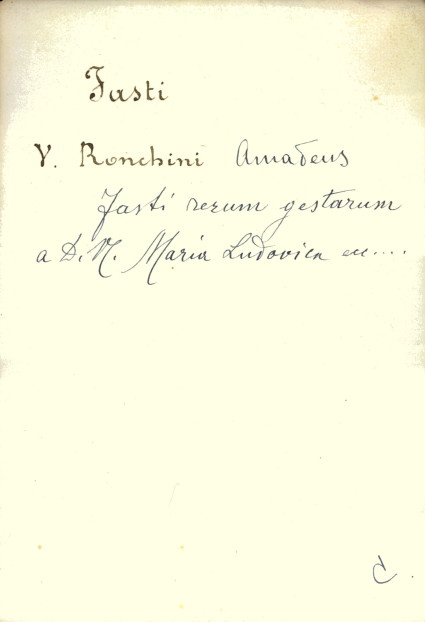 Fasti
V. Ronchini Amadeus
Fasti rerum gestarum
a D. N. Maria Ludovica ecc....
C.